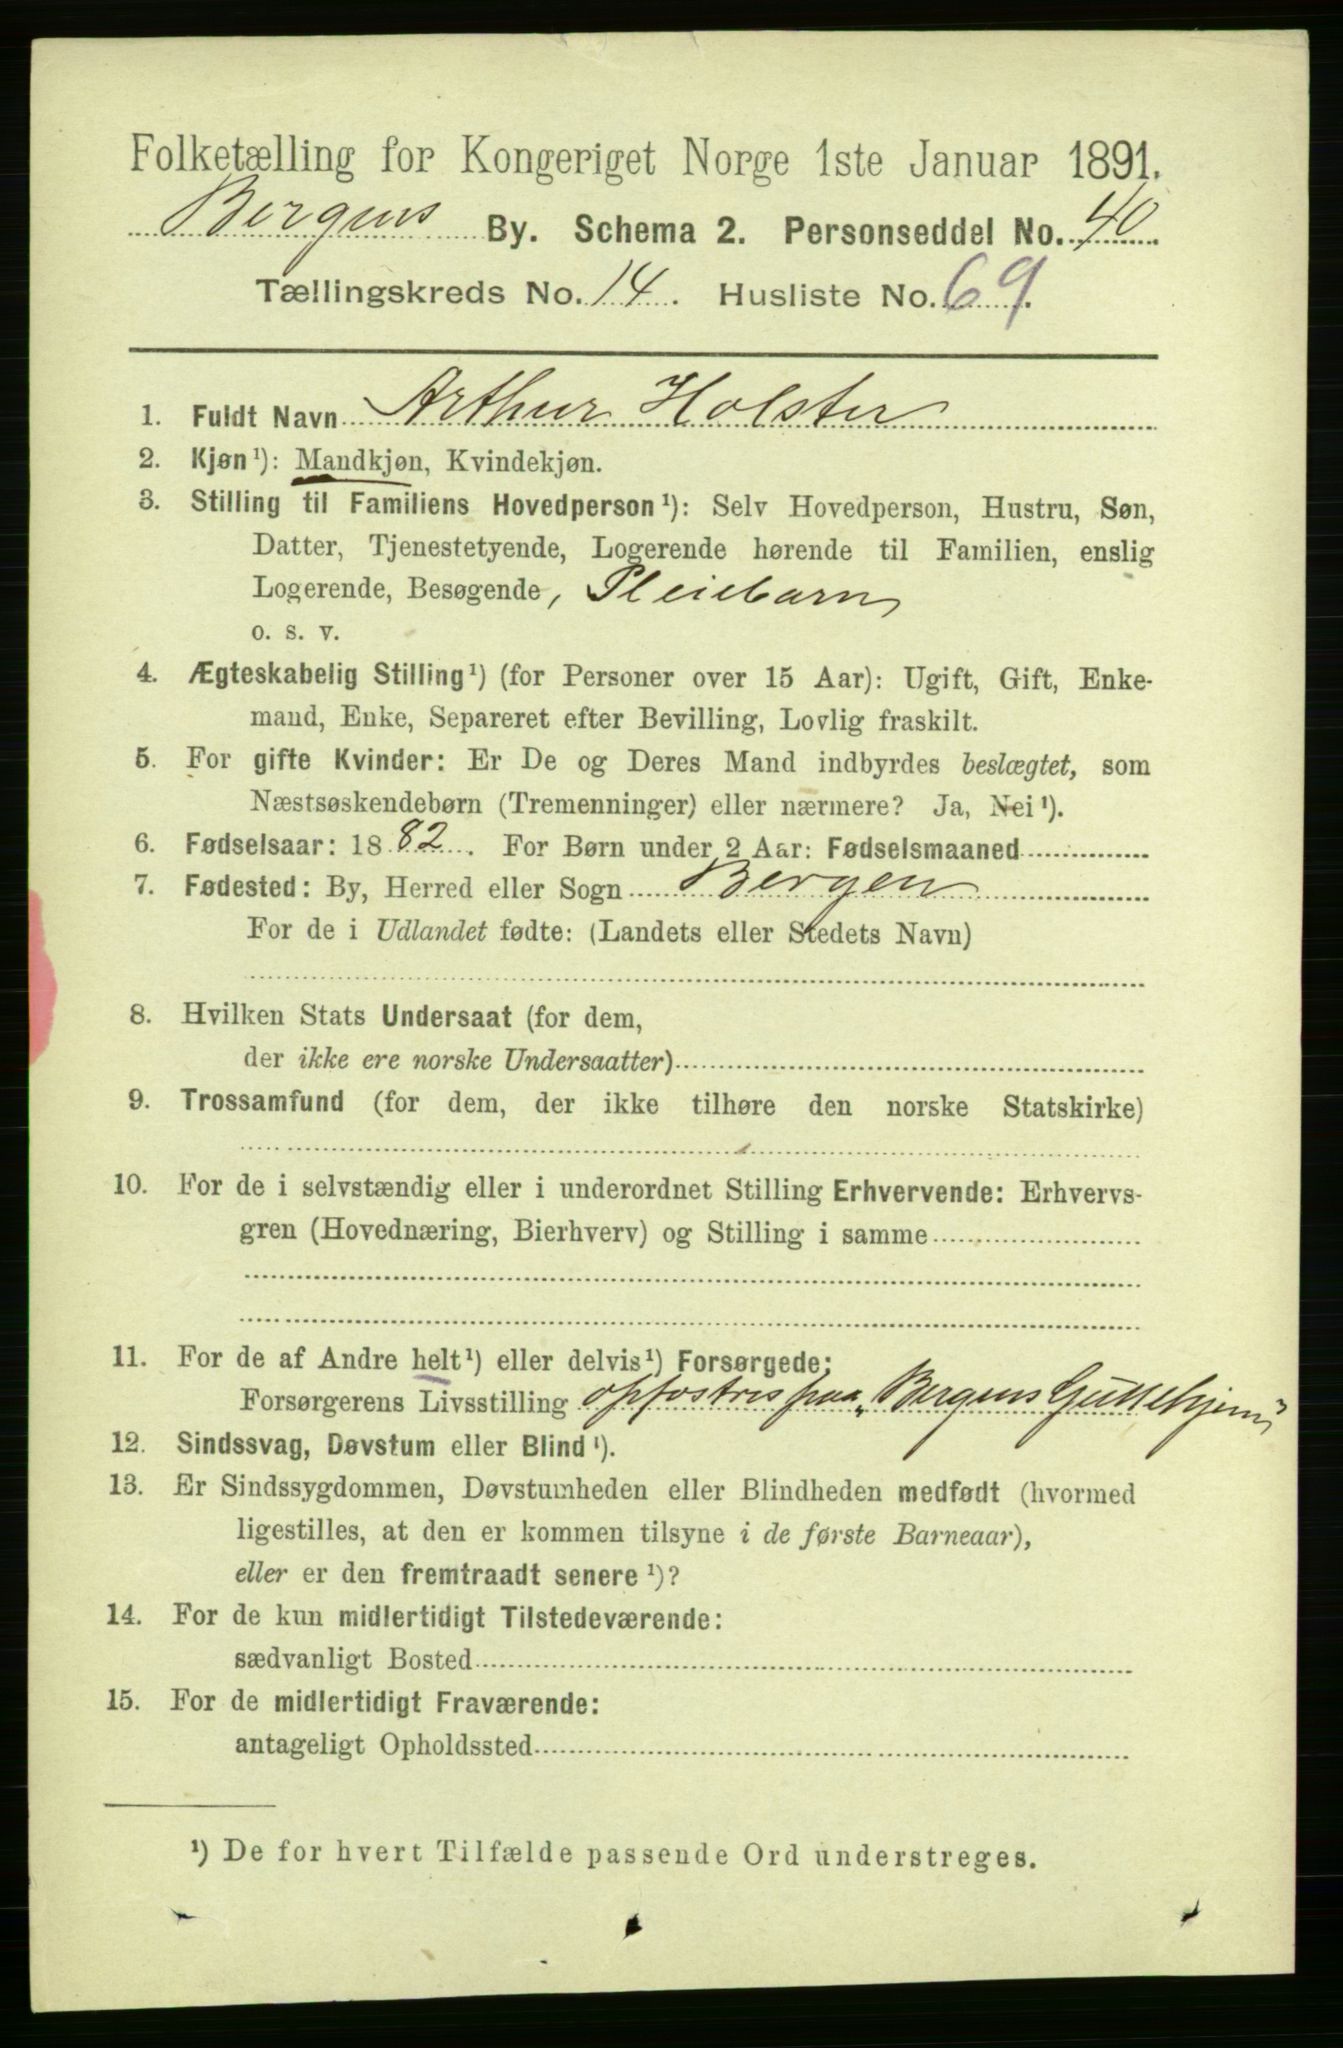 Folketælling for Kongeriget Norge 1ste Januar 1891.
Bergens By. Schema 2. Personseddel No. 40
Tællingskreds No. 14. Husliste No. 69.
1. Fuldt Navn Arthur Holster
2. Kjøn¹): Mandkjøn, Kvindekjøn.
3. Stilling til Familiens Hovedperson¹): Selv Hovedperson, Hustru, Søn,
Datter, Tjenestetyende, Logerende hørende til Familien, enslig
Logerende, Besøgende, Pleiebarn
o. s. v.
4. Ægteskabelig Stilling¹) (for Personer over 15 Aar): Ugift, Gift, Enke-
mand, Enke, Separeret efter Bevilling, Lovlig fraskilt.
5. For gifte Kvinder: Er De og Deres Mand indbyrdes beslægtet, som
Næstsøskendebørn (Tremenninger) eller nærmere? Ja, Nei¹).
6. Fødselsaar: 1882. For Børn under 2 Aar: Fødselsmaaned
7. Fødested: By, Herred eller Sogn Bergen
For de i Udlandet fødte: (Landets eller Stedets Navn)
8. Hvilken Stats Undersaat (for dem,
der ikke ere norske Undersaatter)
9. Trossamfund (for dem, der ikke tilhøre den norske Statskirke)
10. For de i selvstændig eller i underordnet Stilling Erhvervende: Erhvervs-
gren (Hovednæring, Bierhverv) og Stilling i samme
11. For de af Andre helt¹) eller delvis¹) Forsørgede:
Forsørgerens Livsstilling opfostres paa „Bergens Guttehjem"
12. Sindssvag, Døvstum eller Blind¹).
13. Er Sindssygdommen, Døvstumheden eller Blindheden medfødt (hvormed
ligestilles, at den er kommen tilsyne i de første Barneaar),
eller er den fremtraadt senere¹)?
14. For de kun midlertidigt Tilstedeværende:
sædvanligt Bosted
15. For de midlertidigt Fraværende:
antageligt Opholdssted
¹) De for hvert Tilfælde passende Ord understreges.